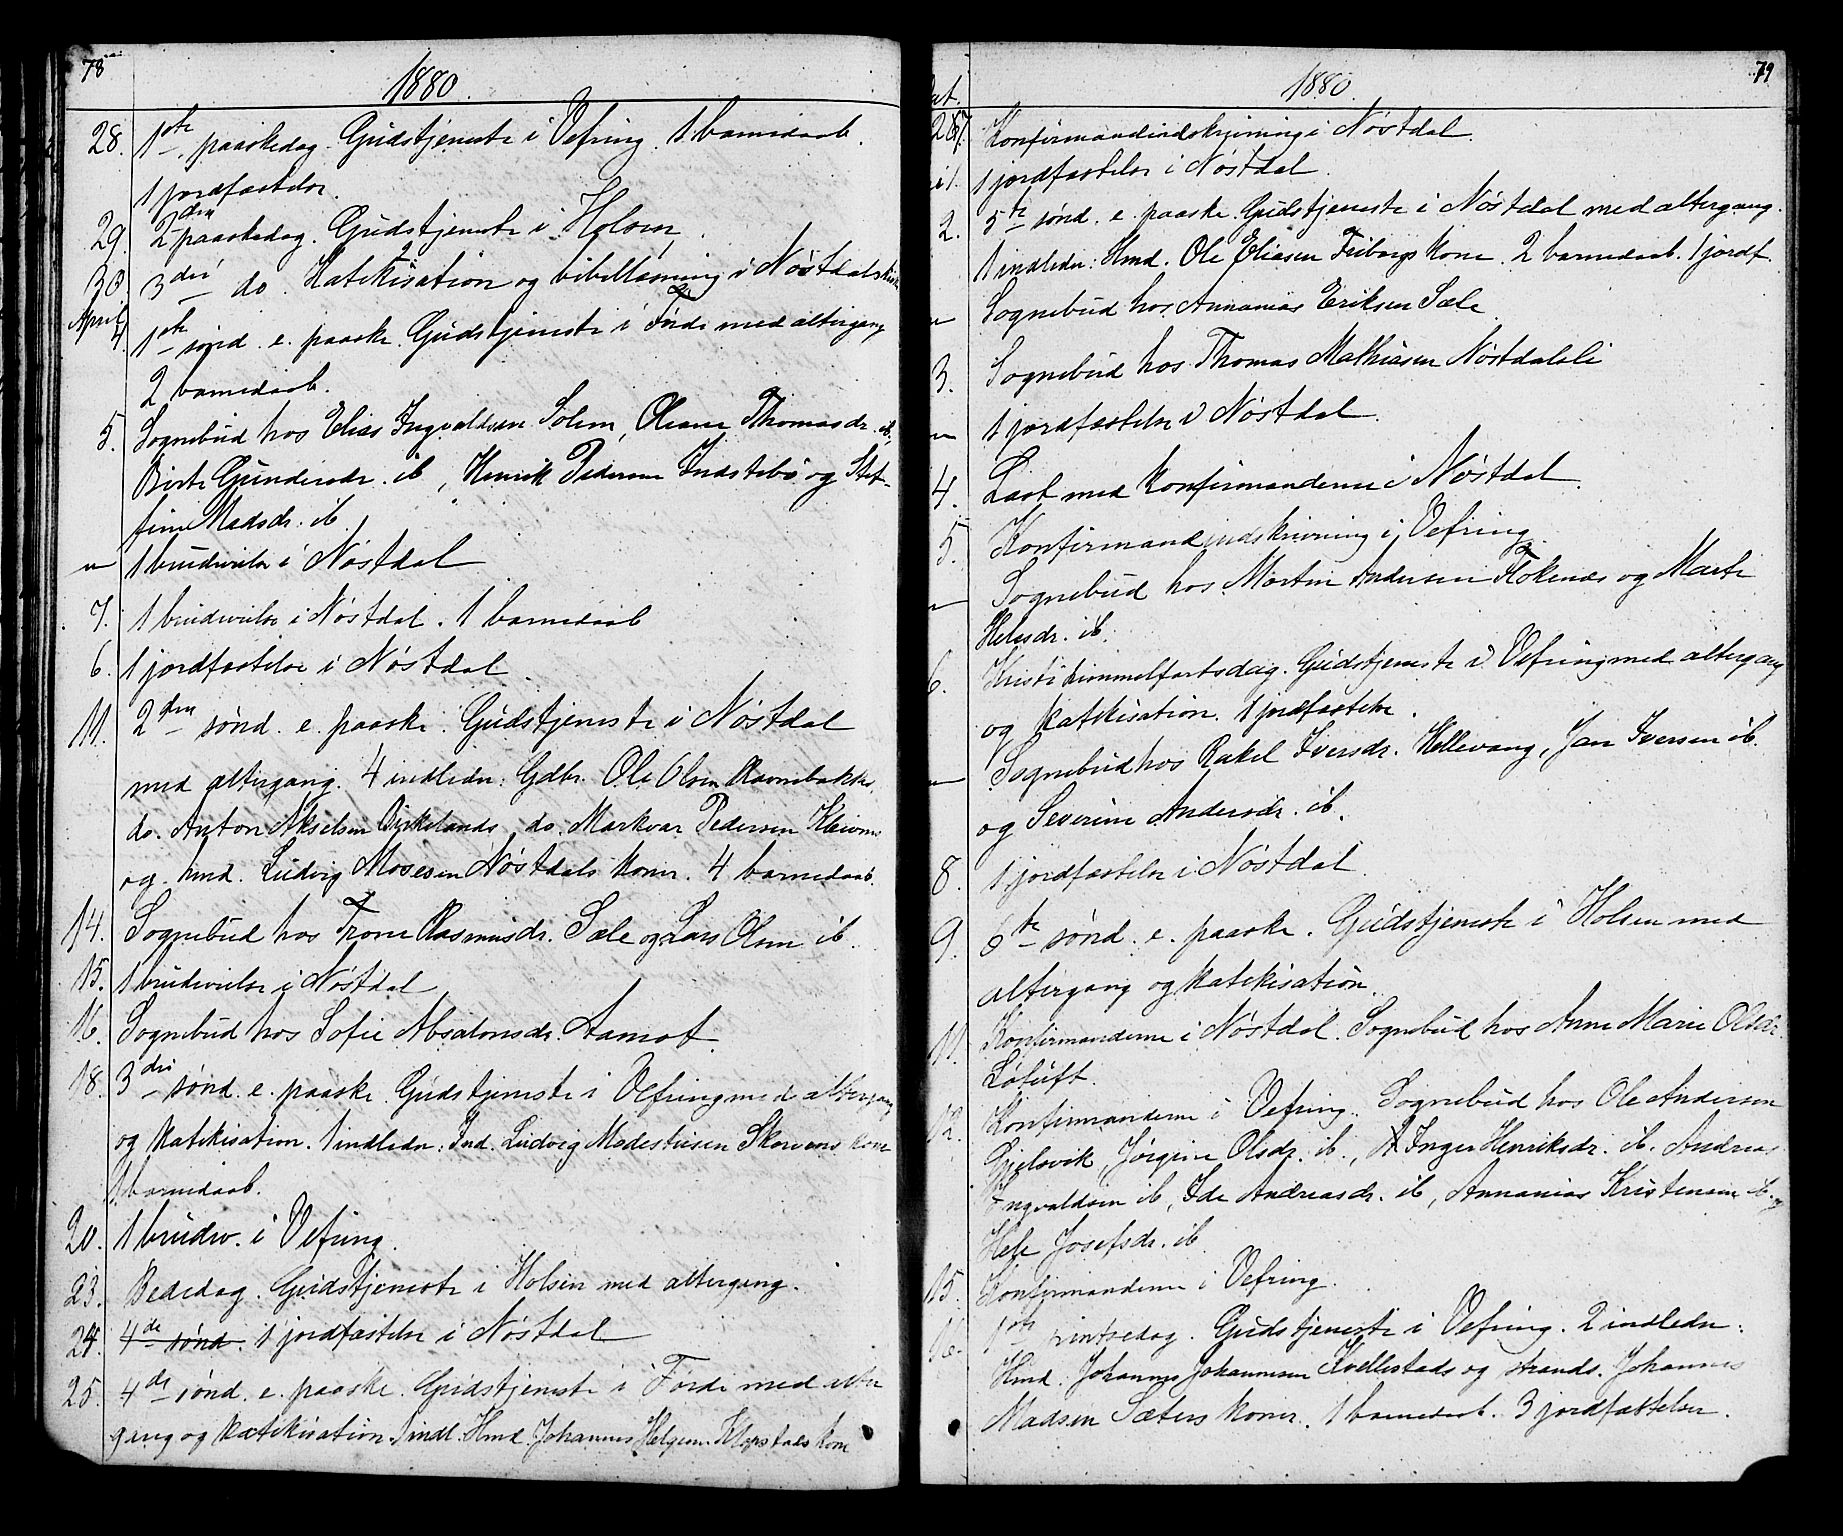 78
1880.
28. 1ste paaskedag. Gudstjeneste i Vefring. 1 barnedaab.
1 jordfæstelse.
29. 2den paaskedag. Gudstjeneste i Holsen.
30 3die do. Katekisation og bibellæsning i Nøstdals
April
4. 1ste sønd. e. paaske. Gudstjeneste i Førde med altergang
2 barnedaab.
5. Sognebud hos Elias Ingvaldsen Solem, Oleane Thomasdr. ib.,
Birte Gundersdr. ib., Henrik Pedersen Indstebø og Stef-
fine Madsdr. ib.
" 1 brudevielse i Nøstdal
7. 1 brudevielse i Nøstdal. 1 barnedaab
6. 1 jordfæstelse i Nøstdal.
11. 2den sønd. e. paaske. Gudstjeneste i Nøstdal
med altergang. 4 indledn: Gdbr. Ole Olsen Ravnebakke,
do. Anton Akselsen Birkelands, do. Markvar Pedersen
og hmd. Ludvig Mosesen Nøstdals koner. 4 barnedaab.
14. Sognebud hos Trone Rasmusdr. Sæle og Lars Olsen ib.
15. 1 brudevielse i Nøstdal
16. Sognebud hos Sofie Absalonsdr. Aamot.
18. 3die sønd. e. paaske. Gudstjeneste i Vefring med altergang
og katekisation. 1 indledn: Ind. Ludvig Modestusen kone
1 barnedaab.
20. 1 brudev. i Vefring.
23. Bededag. Gudstjeneste i Holsen med altergang.
24. 4de sønd. 1 jordfæstelse i Nøstdal
25. 4de sønd. e. paaske. Gudstjeneste i Førde med alter
gang og katekisation. 1 indl. Hmd. Johannes Helgesen Klopstads kone
79
1880.
Konfirmandindskrivning i Nøstdal.
1. 1 jordfæstelse i Nøstdal.
2. 5te sønd. e. paaske. Gudstjeneste i Nøstdal med altergang.
1 indledn: Hmd. Ole Eliasen Friborgs kone. 2 barnedaab. 1 jordf.
" Sognebud hos Annanias Eriksen Sæle.
3. Sognebud hos Thomas Mathiasen Nøstdalsli
" 1 jordfæstelse i Nøstdal.
4. Læst med konfirmanderne i Nøstdal.
5. Konfirmandindskrivning i Vefring.
" Sognebud hos Morten Andersen Flokenæs og Marte
Helesdr. ib.
6. Kristi himmelfartsdag. Gudstjeneste i Vefring med altergang
og katekisation. 1 jordfæstelse.
" Sognebud hos Rakel Iversdr. Hellevang, Jan Iversen ib.
og Severine Andersdr. ib.
8. 1 jordfæstelse i Nøstdal.
9. 6te sønd. e. paaske. Gudstjeneste i Holsen med
altergang og katekisation.
11. Konfirmanderne i Nøstdal. Sognebud hos Anne Marie Olsdr.
Løtuft.
12. Konfirmanderne i Vefring. Sognebud hos Ole Andersen
Gjelsvik, Jørgine Olsdr. ib., Inger Henriksdr. ib. Andreas
Ingvaldsen ib., Ide Andreasdr. ib., Annanias Kristensen ib. og
Hele Josefsdr. ib.
15. Konfirmanderne i Vefring.
16. 1ste pintsedag. Gudstjeneste i Vefring. 2 indledn:
Hmd. Johannes Johannesen Kvellestads og strands. Johannes
Madsen Sæters koner. 1 barnedaab. 3 jordfæstelser.